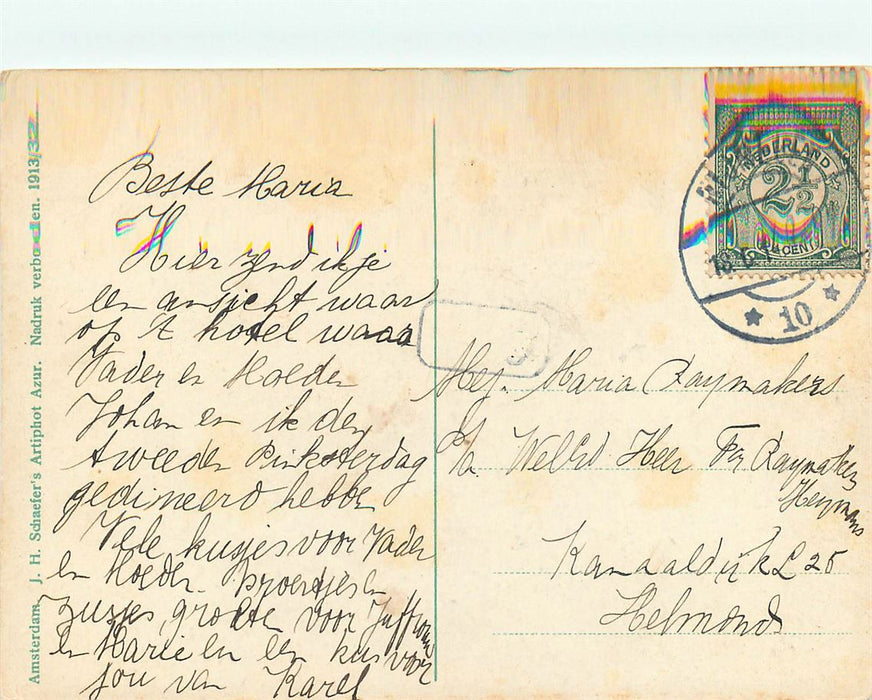 Amsterdam, J. H. Schaefer's Artiphot Azur. Nadruk verboden. 1913/32
Beste Maria
Hier zend ik je
een ansicht waar
op 't hotel waar
Vader en Moeder
Johan en ik den
tweeden Pinksterdag
gedineerd hebben
Vele kusjes voor Vader
en Moeder. broertjes en
zusjes, groeten voor Juffrouw
en Marie en een kus voor
jou van Karel
NEDERLAND
2 1/2
CENT
10
Mej. Maria Raymakers
p/a WelEd Heer Fr Raymakers
Heymans
Kanaaldijk L 25
Helmond